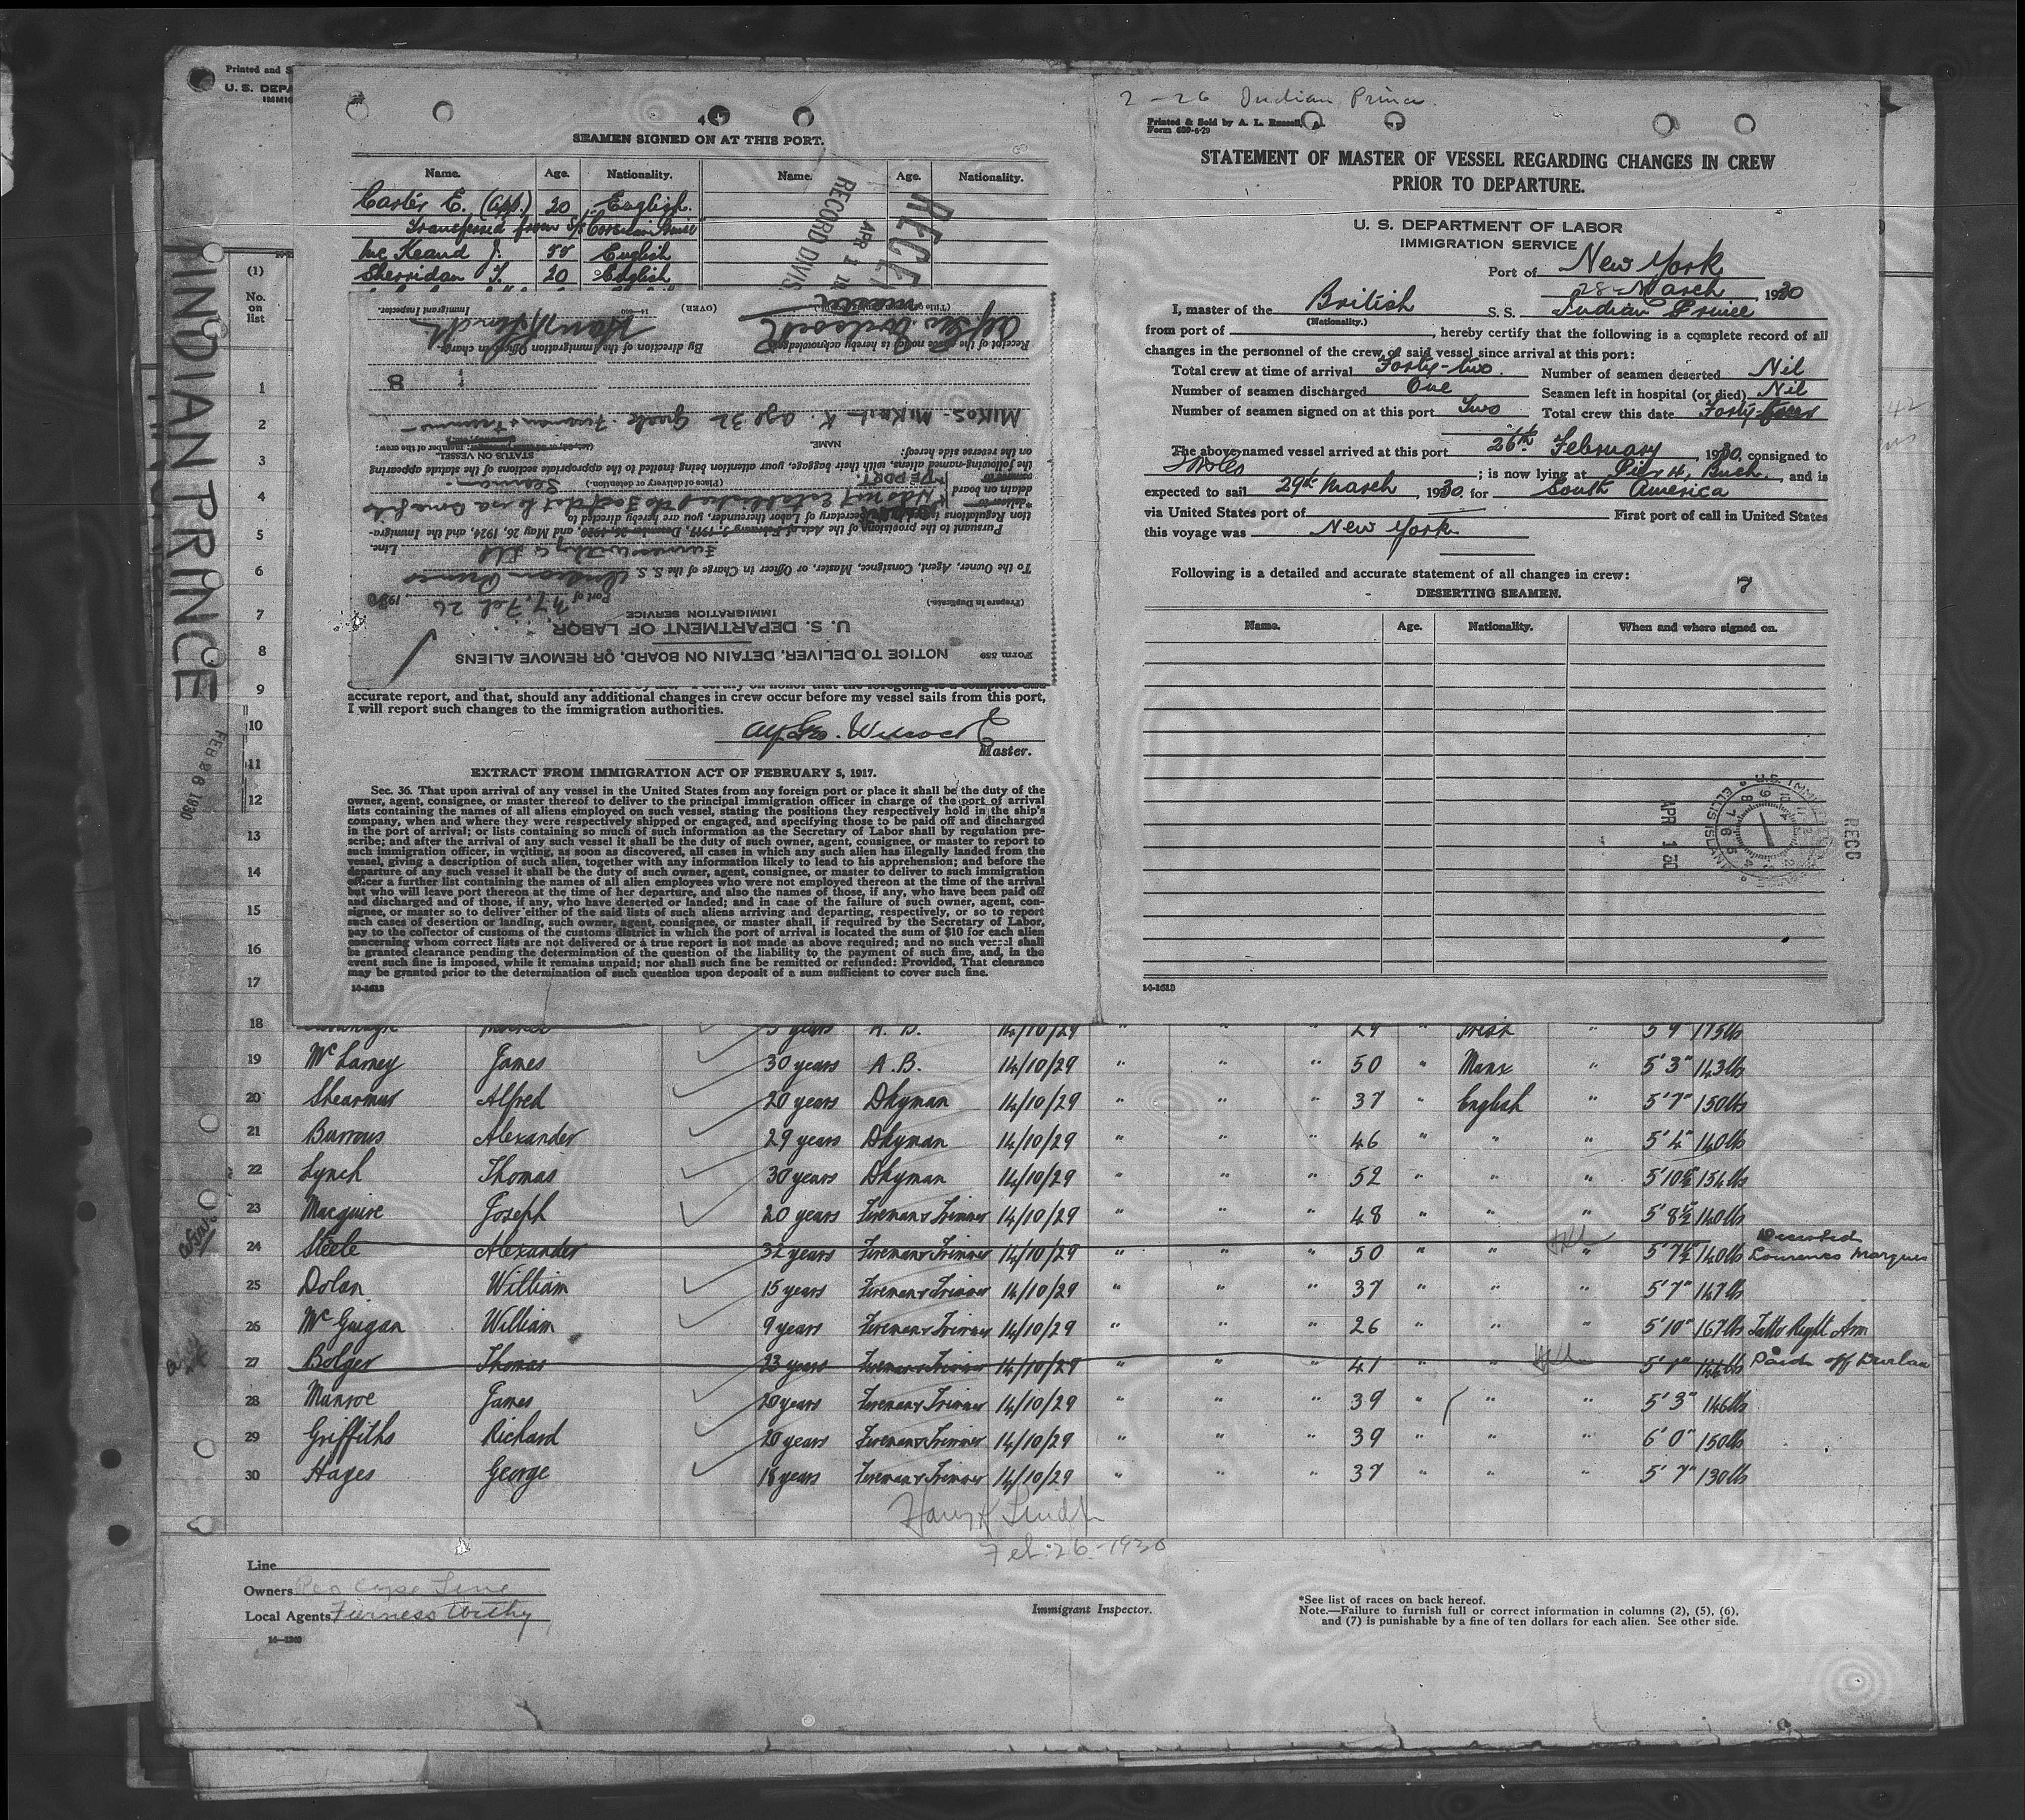 Printed and S
U. S. DEPA
IMMIG
INDIAN PRINCE
FEB 26 1930
4
SEAMEN SIGNED ON AT THIS PORT.
Name. Age. Nationality. Name. Age. Nationality.
Carter E. (App.) 20 English.
Transferred from S/S Corsican Prince
Mc Keand J. 55 English
Sherridan T. 20 English
RECE
APR 1 19
RECORD DIVIS
Form 559
NOTICE TO DELIVER, DETAIN ON BOARD, OR REMOVE ALIENS
U. S. DEPARTMENT OF LABOR
IMMIGRATION SERVICE
(Prepare in Duplicate.)
Port of N.Y. Feb 26, 1930
To the Owner, Agent, Consignee, Master, or Officer in Charge of the S. S. Indian Prince
Furness Withy Co Ltd Line.
Pursuant to the provisions of the Acts of February 5, 1917, December 26, 1920, and May 26, 1924, and the Immigra-
tion Regulations Secretary of Labor thereunder, you are hereby directed to
detain on board
DEPORT
(Place of delivery or detention.)
Seaman
the following-named aliens, with their baggage, your attention being invited to the appropriate sections of the statute appearing
on the reverse side hereof:
NAME. STATUS ON VESSEL
member of the crew;
MIKOS - Mikail K. age 32 Greek Fireman & Trimmer
1 8
By direction of the Immigration Officer in charge.
Receipt of the above notice is hereby acknowledged
Alf. Geo. Wilcock Harry H Lindt
master
Immigrant Inspector.
14-600 (OVER)
accurate report, and that, should any additional changes in crew occur before my vessel sails from this port,
I will report such changes to the immigration authorities.
Alf. Geo. Wilcock
Master.
EXTRACT FROM IMMIGRATION ACT OF FEBRUARY 5, 1917.
Sec. 36. That upon arrival of any vessel in the United States from any foreign port or place it shall be the duty of the
owner, agent, consignee, or master thereof to deliver to the principal immigration officer in charge of the port of arrival
lists containing the names of all aliens employed on such vessel, stating the positions they respectively hold in the ship's
company, when and where they were respectively shipped or engaged, and specifying those to be paid off and discharged
in the port of arrival; or lists containing so much of such information as the Secretary of Labor shall by regulation pre-
scribe; and after the arrival of any such vessel it shall be the duty of such owner, agent, consignee, or master to report to
such immigration officer, in writing, as soon as discovered, all cases in which any such alien has illegally landed from the
vessel, giving a description of such alien, together with any information likely to lead to his apprehension; and before the
departure of any such vessel it shall be the duty of such owner, agent, consignee, or master to deliver to such immigration
officer a further list containing the names of all alien employees who were not employed thereon at the time of the arrival
but who will leave port thereon at the time of her departure, and also the names of those, if any, who have been paid off
and discharged and of those, if any, who have deserted or landed; and in case of the failure of such owner, agent, con-
signee, or master so to deliver either of the said lists of such aliens arriving and departing, respectively, or so to report
such cases of desertion or landing, such owner, agent, consignee, or master shall, if required by the Secretary of Labor,
pay to the collector of customs of the customs district in which the port of arrival is located the sum of $10 for each alien
concerning whom correct lists are not delivered or a true report is not made as above required; and no such vessel shall
be granted clearance pending the determination of the question of the liability to the payment of such fine, and, in the
event such fine is imposed, while it remains unpaid; nor shall such fine be remitted or refunded: Provided, That clearance
may be granted prior to the determination of such question upon deposit of a sum sufficient to cover such fine.
14-1613
2-26 Indian Prince.
Printed & Sold by A. L. Russell,
Form 689-6-29
STATEMENT OF MASTER OF VESSEL REGARDING CHANGES IN CREW
PRIOR TO DEPARTURE.
U. S. DEPARTMENT OF LABOR
IMMIGRATION SERVICE
Port of New York
28th March, 1930
I, master of the British S. S. Indian Prince
(Nationality.)
from port of , hereby certify that the following is a complete record of all
changes in the personnel of the crew of said vessel since arrival at this port:
Total crew at time of arrival Forty-two. Number of seamen deserted Nil
Number of seamen discharged One Seamen left in hospital (or died) Nil
Number of seamen signed on at this port Two Total crew this date Forty-
The above-named vessel arrived at this port 26th February, 1930, consigned to
; is now lying at Pier 4, Bush., and is
expected to sail 29th March, 1930 for South America
via United States port of First port of call in United States
this voyage was New York
Following is a detailed and accurate statement of all changes in crew:
DESERTING SEAMEN.
Name. Age. Nationality. When and where signed on.
U.S. IMMI
ELLIS ISLAND
APR 1 30
RECO
14-1613
(1)
No.
on
list
1
2
3
4
5
6
7
8
9
10
11
12
13
14
15
16
17
18 5 years A. B. 14/10/29 " " " 29 " Irish " 5'9 175lbs
19 Mc Larney James 30 years A. B. 14/10/29 " " " 50 " Manx " 5'3" 143lbs
20 Shearmur Alfred 20 years Dkyman 14/10/29 " " " 37 " English " 5'7" 150lbs
21 Burrous Alexander 29 years Dkyman 14/10/29 " " " 46 " " " 5'4" 140lb
22 Lynch Thomas 30 years Dkyman 14/10/29 " " " 52 " " " 5'10½ 154lbs
23 Macguire Joseph 20 years Fireman & Trimmer 14/10/29 " " " 48 " " " 5'8½ 140lbs
24 Steele Alexander 32 years Fireman & Trimmer 14/10/29 " " " 50 " " " 5'7½ 140lbs Deserted Lourenco Marques
25 Dolan William 15 years Fireman & Trimmer 14/10/29 " " " 37 " " " 5'7" 147lb
26 Mc Guigan William 9 years Fireman & Trimmer 14/10/29 " " " 26 " " " 5'10" 167lbs Tatto Right Arm
27 Bolger Thomas 23 years Fireman & Trimmer 14/10/29 " " " 41 " " " 144lb Paid off Durban
28 Munroe James 20 years Fireman & Trimmer 14/10/29 " " " 39 " " " 5'3" 146lb
29 Griffiths Richard 20 years Fireman & Trimmer 14/10/29 " " " 39 " " " 6'0" 150lb
30 Hages George 18 years Fireman & Trimmer 14/10/29 " " " 37 " " " 5'7" 130lb
Harry H Lindt
Feb. 26-1930
Line
Owners Cape Line
Local Agents Furness Withy
14-1240
Immigrant Inspector.
*See list of races on back hereof.
Note.—Failure to furnish full or correct information in columns (2), (5), (6),
and (7) is punishable by a fine of ten dollars for each alien. See other side.